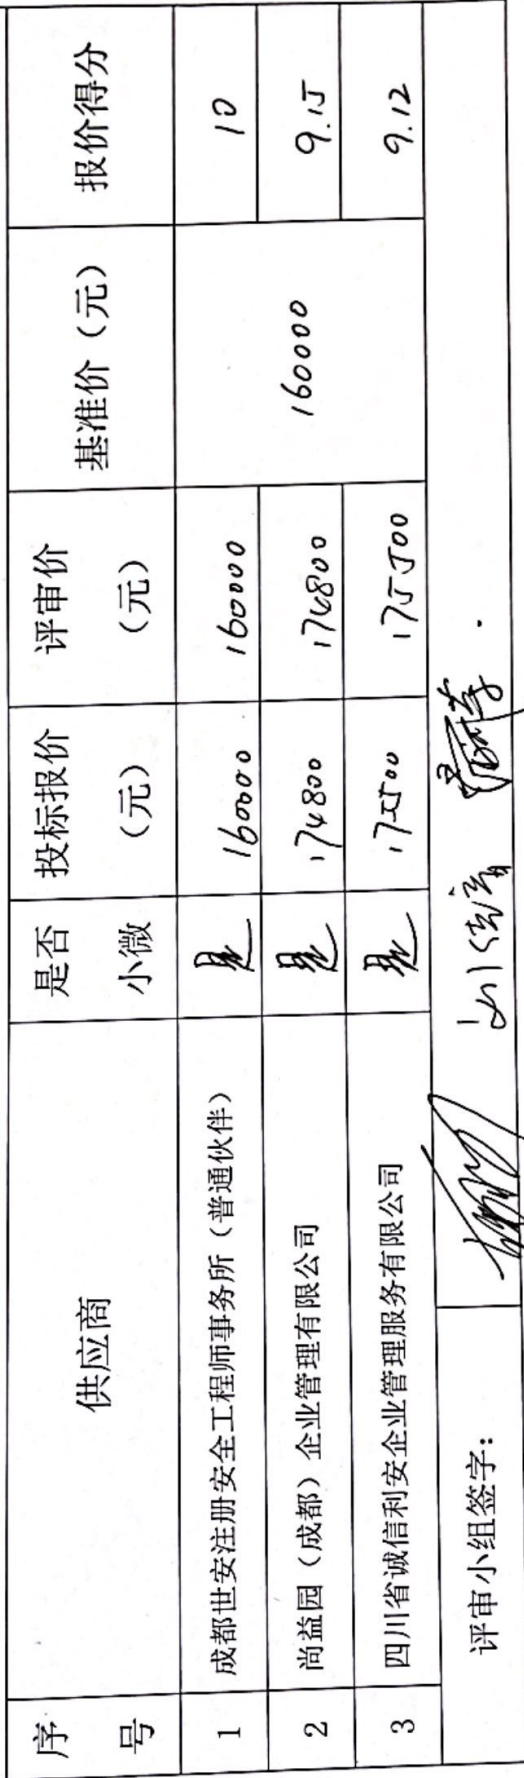 序号 供应商 是否小微 投标报价（元） 评审价（元） 基准价（元） 报价得分
1 成都世安注册安全工程师事务所（普通伙伴） 是 160000 160000 160000 10
2 尚益园（成都）企业管理有限公司 是 174800 174800 9.15
3 四川省诚信利安企业管理服务有限公司 是 175500 175500 9.12
评审小组签字：